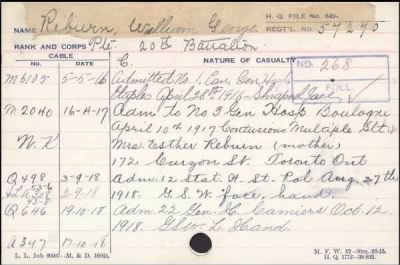 H. Q. FILE No. 649-
NAME Reburn, William George REGT'L No. 57290
RANK AND CORPS Pte. 20th Battalion
CABLE NATURE OF CASUALTY NO. 268
No. DATE C. FOLL.
M6105 5-5-16 Admitted No. 1. Can. Gen. Hosp.
Etaples April 28th 1916 - Shrapnel face,
M2040 16-4-17 Adm. to No 3 Gen Hosp Boulogne
April 10th 1917 Contusions Multiple Slt.
N.K Mrs. Esther Reburn (mother)
172 Curzon St. Toronto Ont
Q498 3-9-18 Adm. 12 Stat. H. St. Pol Aug. 27th
2-9-18 1918. G.S.W. face, hand.
Q646 19-10-18 Adm. 22 Gen. H. Camiers Oct. 12
1918. GSW. L Hand
A347 17-10-18
L. L. Job - M. & D. M. F. W. 42-50m.
H. Q. 1772-39-